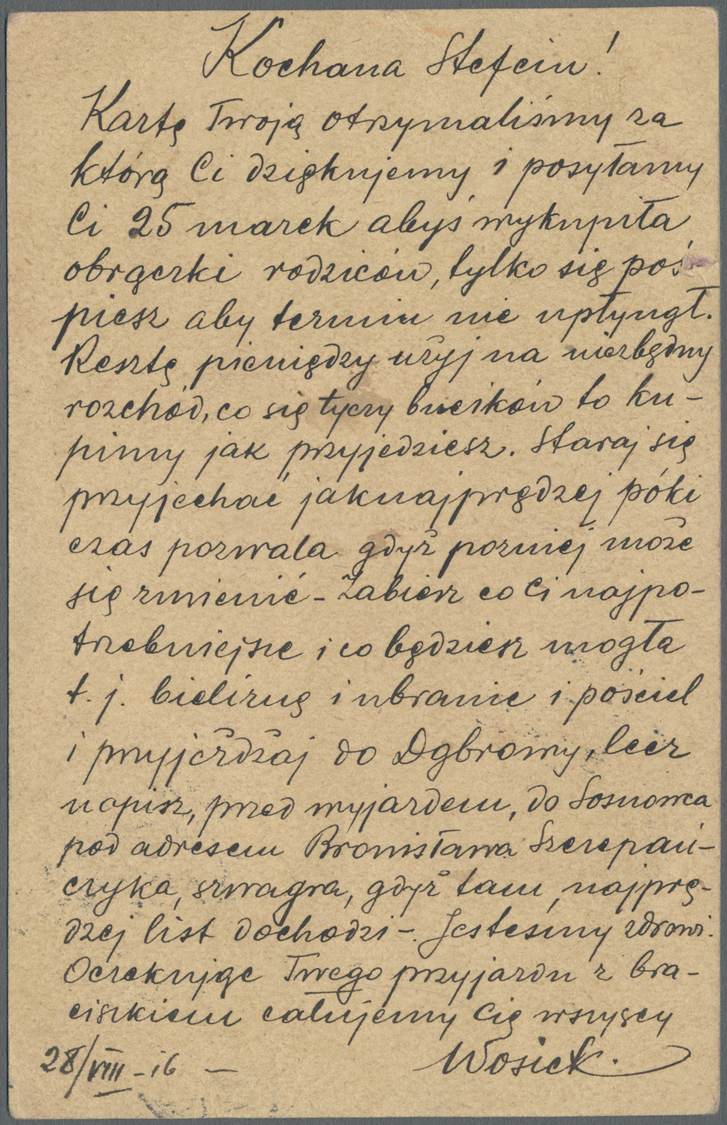 Kochana Stefciu!
Kartę Twoją otrzymaliśmy za
którą Ci dziękujemy i posyłamy
Ci 25 marek abyś wykupiła
obrączki rodziców, tylko się poś-
piesz aby termin nie upłynął.
Resztę pieniędzy użyj na niezbędny
rozchód, co się tyczy bucików to ku-
pimy jak przyjedziesz. Staraj się
przyjechać jaknajprędzej póki
czas pozwala gdyż pozniej może
się zmienić - Zabierz co Ci najpo-
trzebniejsze i co będziesz mogła
t. j. bieliznę i ubranie i pościel
i przyjeżdżaj do Dąbrowy, lecz
napisz, przed wyjazdem, do Sosnowca
pod adresem Bronisława Szczepań-
czyka, szwagra, gdyż tam, najprę-
dzej list dochodzi -. Jesteśmy zdrowi.
Oczekując Twego przyjazdu z bra-
ciszkiem całujemy Cię wszyscy
28/VIII - 16 — Wosick.